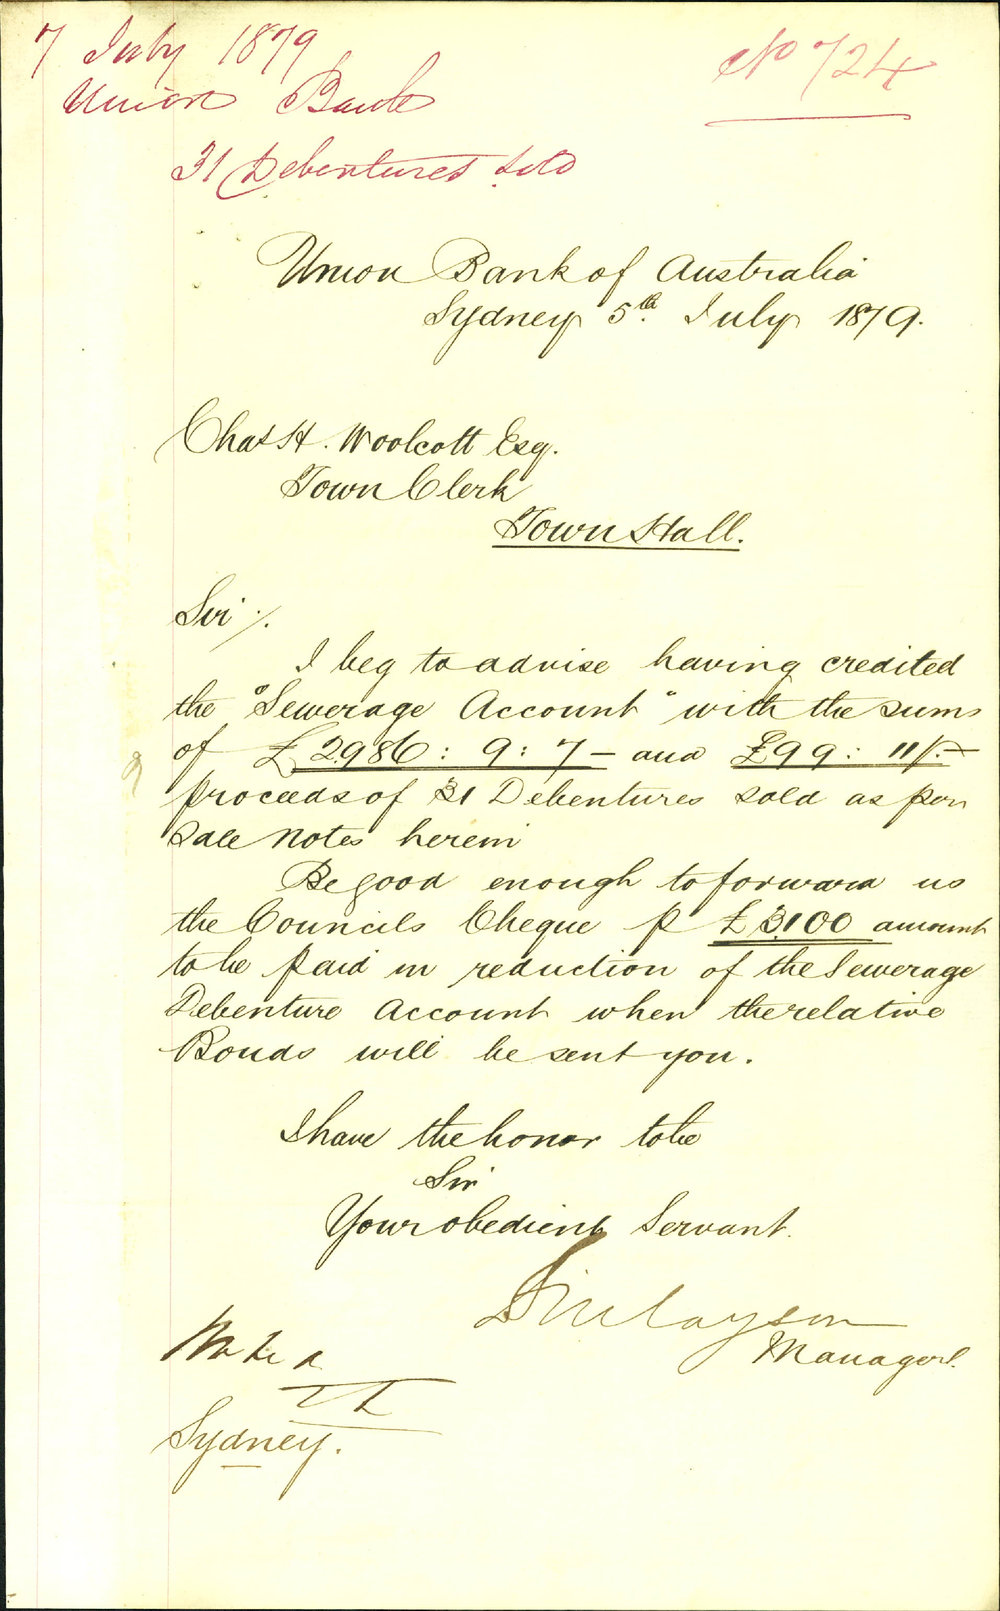 7 July 1879
No 724
Union Bank
31 Debentures sold
Union Bank of Australia
Sydney 5th. July 1879.
Chas H. Woolcott Esq.
Town Clerk
Town Hall.
Sir /.
I beg to advise having credited
the "Sewerage Account" with the sums
of £2986 : 9 : 7 – and £99 : 11/. –
proceeds of 31 Debentures sold as per
Sale Notes herein
Be good enough to forward us
the Councils Cheque p £3100 amount
to be paid in reduction of the Sewerage
Debenture Account when the relative
Bonds will be sent you.
I have the honor to be
Sir
Your obedient Servant.
Finlayson
Manager.
Sydney.